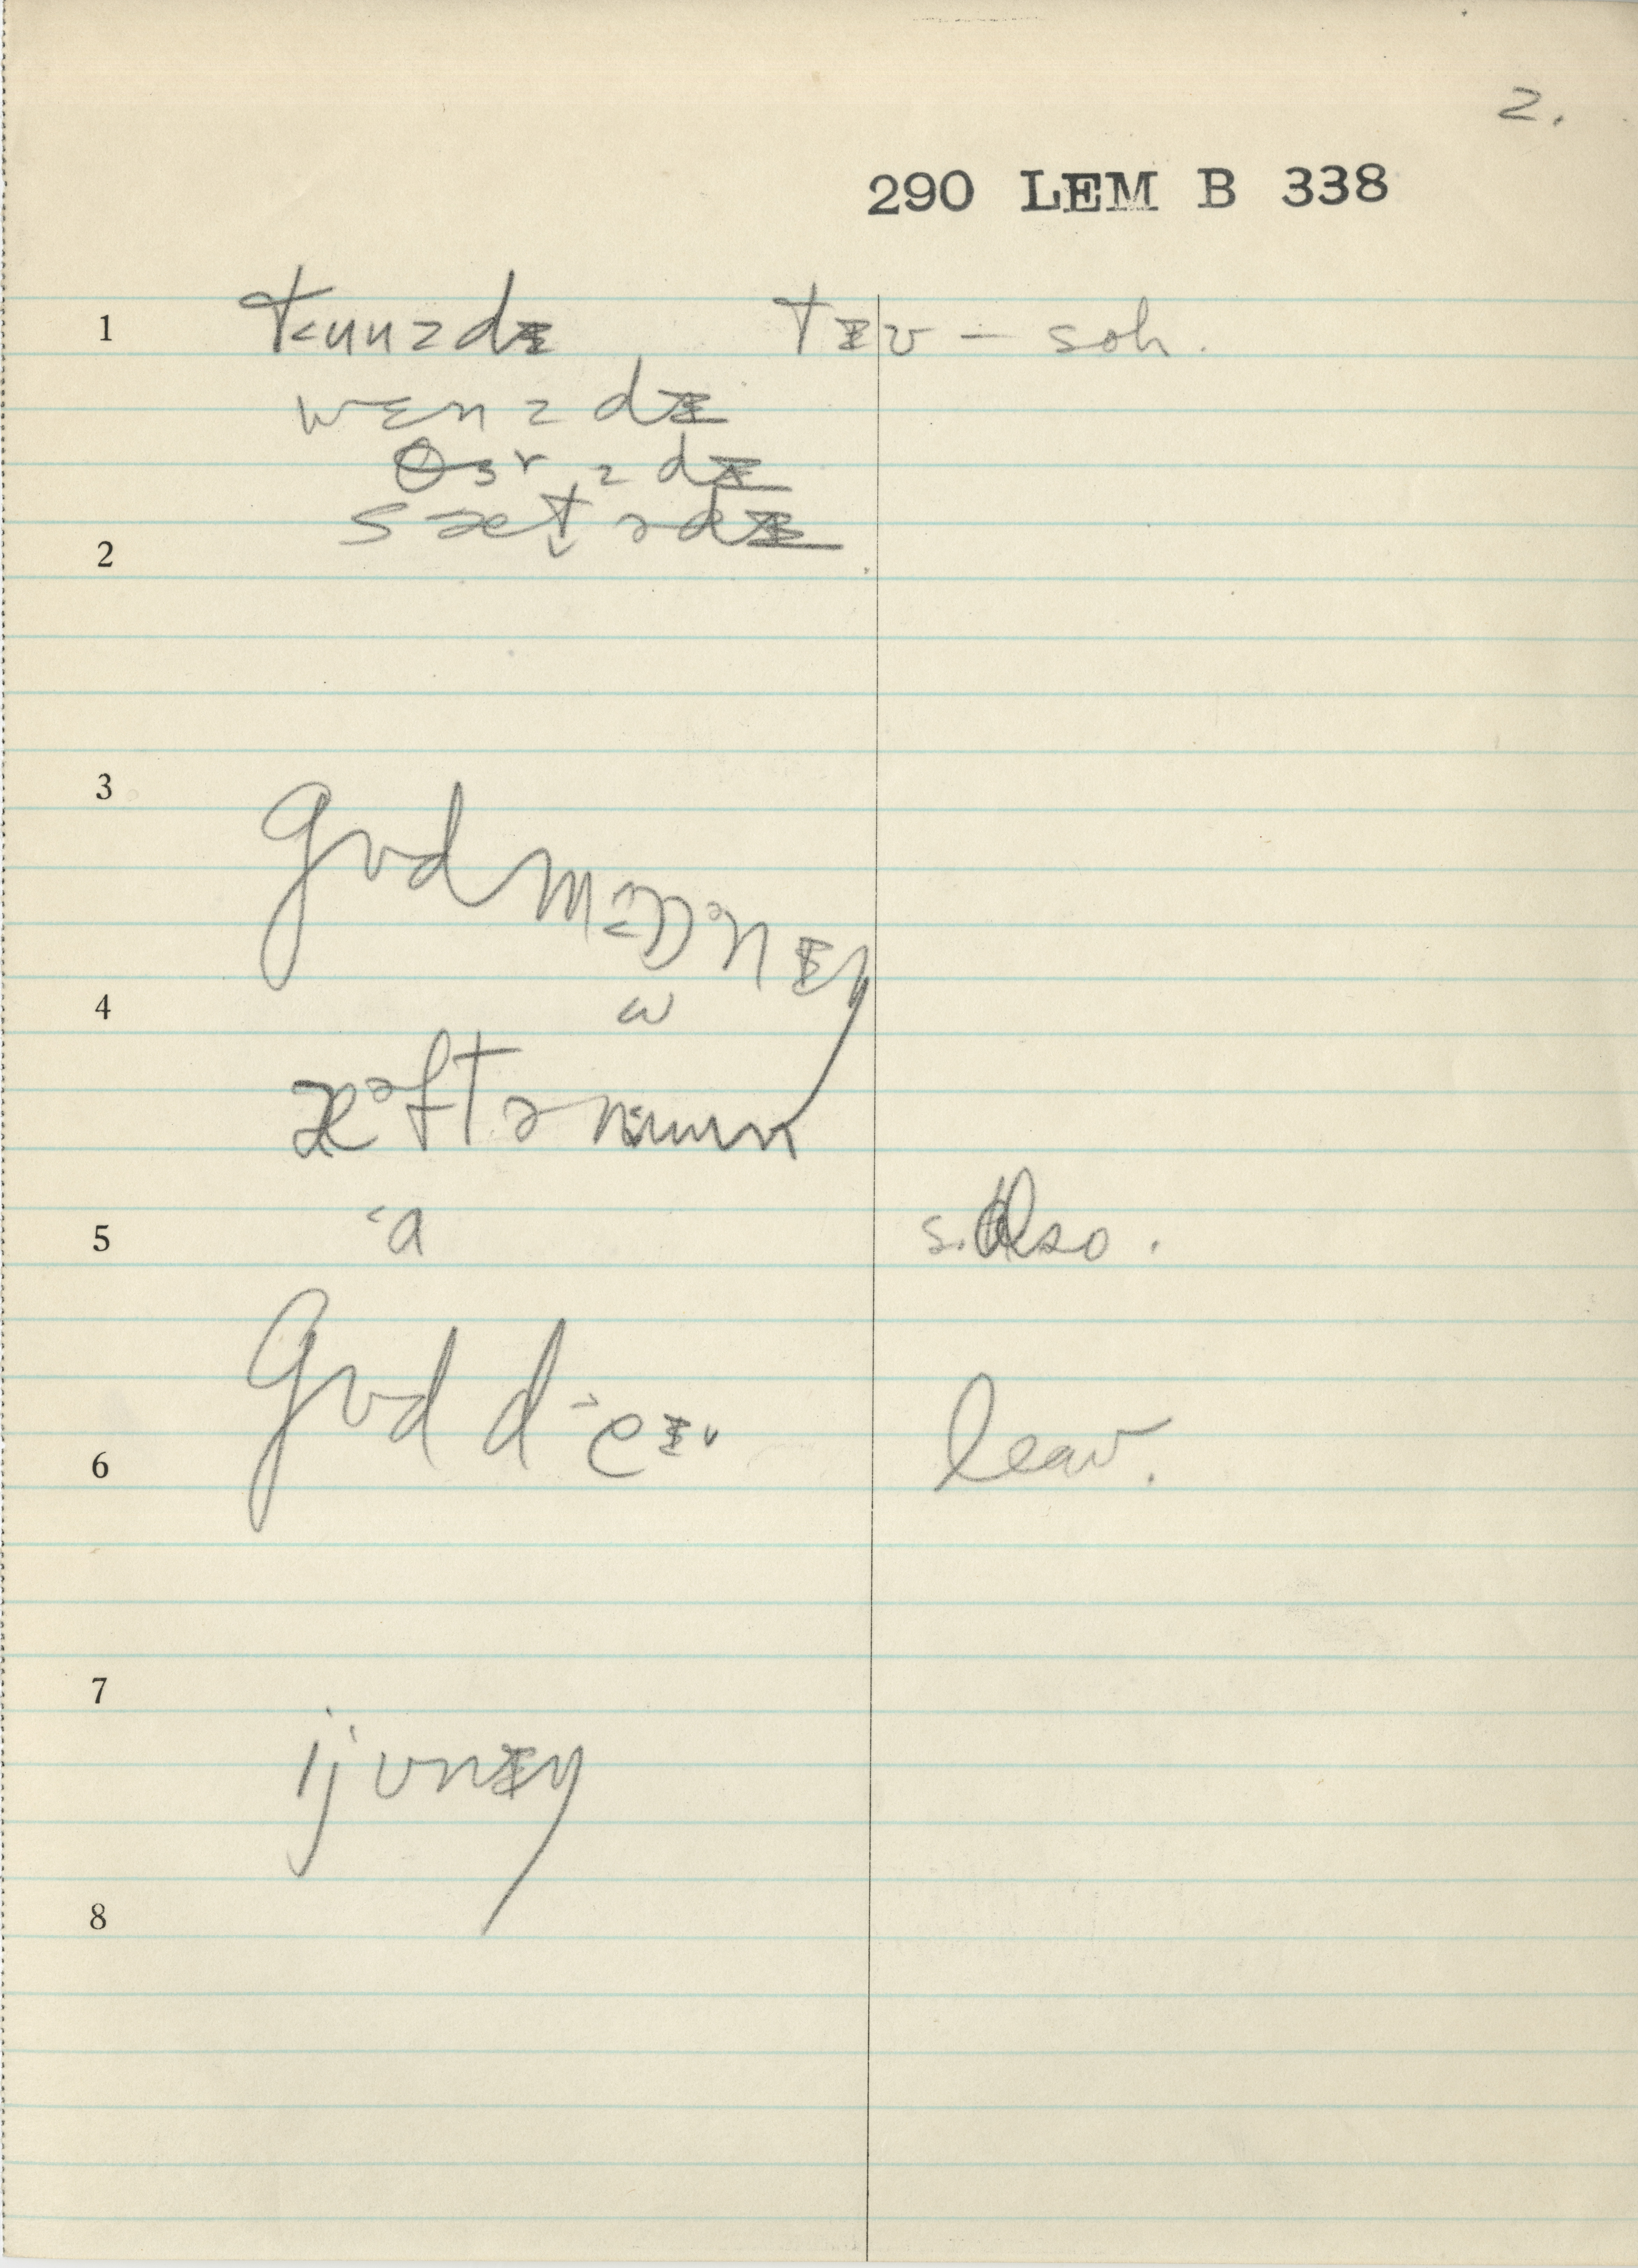 2.
290 LEM B 338
1 t<uuzdɪ tɪʊ – soh.
wɛnzdɪ
θɜrzdɪ
2 sæt̬ədɪ
3 gʊd
4 ɷ
æᵊftənuun
5 ˂a also.
gʊd d˃eɪ
6 leav.
7 ijʊnɪŋ
8